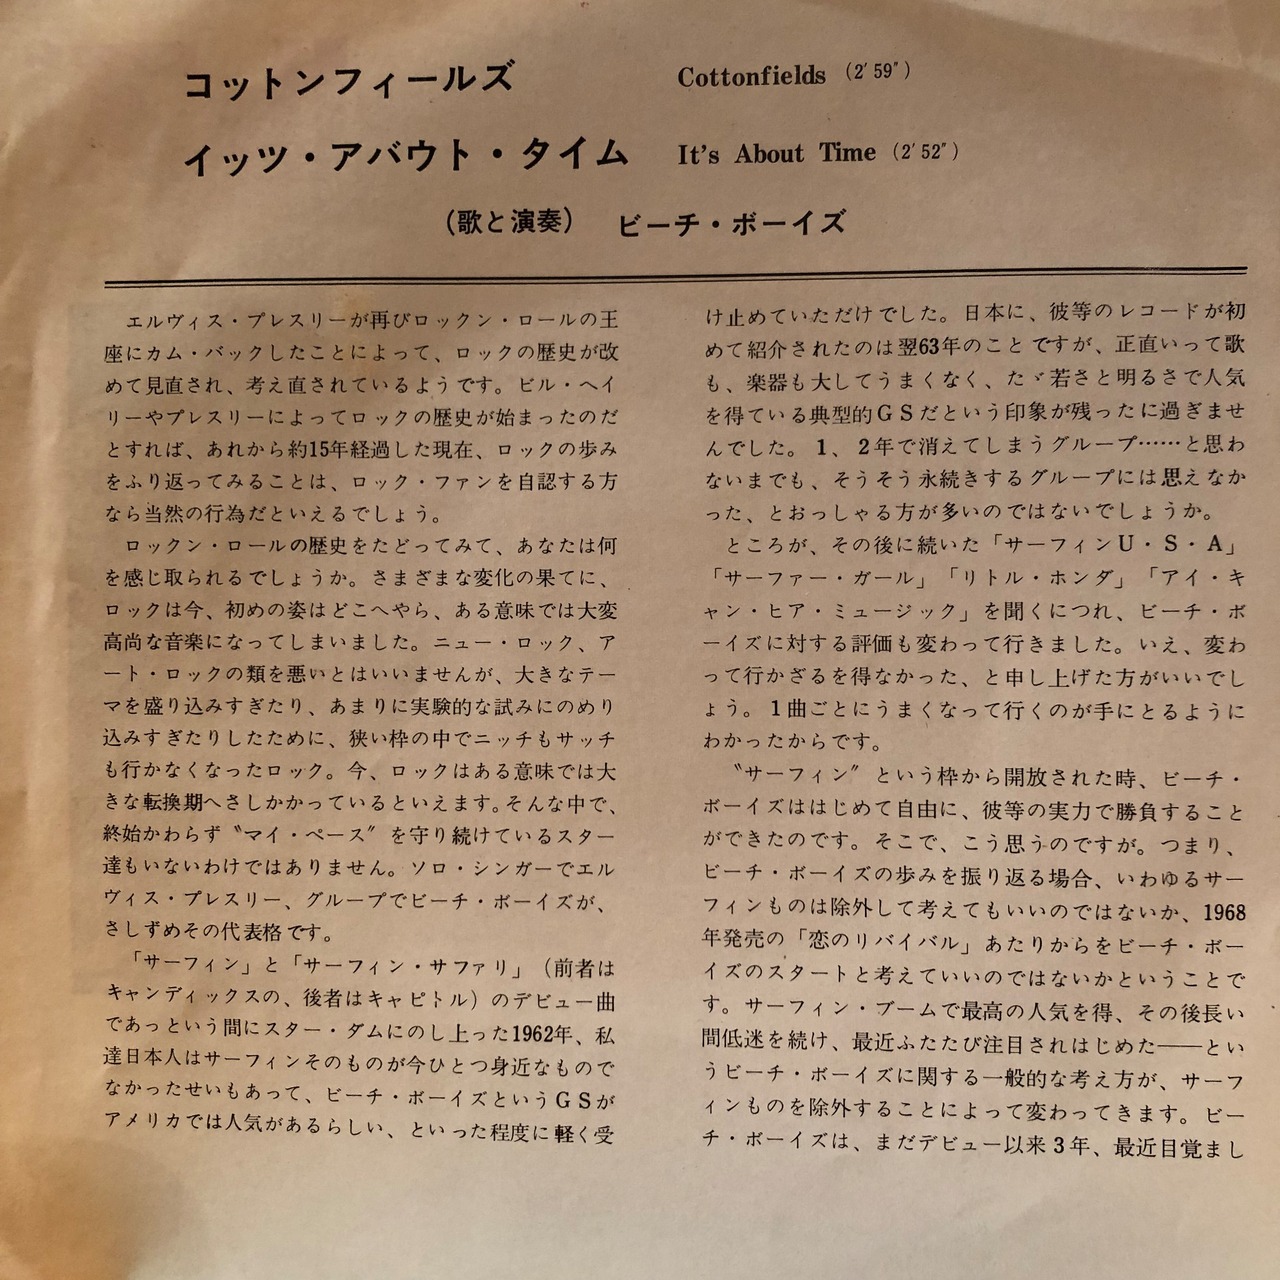 コットンフィールズ Cottonfields (2′59″)
イッツ・アバウト・タイム It's About Time (2′52″)
(歌と演奏) ビーチ・ボーイズ
エルヴィス・プレスリーが再びロックン・ロールの王
座にカム・バックしたことによって、ロックの歴史が改
めて見直され、考え直されているようです。ビル・ヘイ
リーやプレスリーによってロックの歴史が始まったのだ
とすれば、あれから約15年経過した現在、ロックの歩み
をふり返ってみることは、ロック・ファンを自認する方
なら当然の行為だといえるでしょう。
ロックン・ロールの歴史をたどってみて、あなたは何
を感じ取られるでしょうか。さまざまな変化の果てに、
ロックは今、初めの姿はどこへやら、ある意味では大変
高尚な音楽になってしまいました。ニュー・ロック、ア
ート・ロックの類を悪いとはいいませんが、大きなテー
マを盛り込みすぎたり、あまりに実験的な試みにのめり
込みすぎたりしたために、狭い枠の中でニッチもサッチ
も行かなくなったロック。今、ロックはある意味では大
きな転換期へさしかかっているといえます。そんな中で、
終始かわらず〝マイ・ペース〞を守り続けているスター
達もいないわけではありません。ソロ・シンガーでエル
ヴィス・プレスリー、グループでビーチ・ボーイズが、
さしずめその代表格です。
「サーフィン」と「サーフィン・サファリ」(前者は
キャンディックスの、後者はキャピトル)のデビュー曲
であっという間にスター・ダムにのし上った1962年、私
達日本人はサーフィンそのものが今ひとつ身近なもので
なかったせいもあって、ビーチ・ボーイズというGSが
アメリカでは人気があるらしい、といった程度に軽く受
け止めていただけでした。日本に、彼等のレコードが初
めて紹介されたのは翌63年のことですが、正直いって歌
も、楽器も大してうまくなく、たゞ若さと明るさで人気
を得ている典型的GSだという印象が残ったに過ぎませ
んでした。1、2年で消えてしまうグループ……と思わ
ないまでも、そうそう永続きするグループには思えなか
った、とおっしゃる方が多いのではないでしょうか。
ところが、その後に続いた「サーフィンU・S・A」
「サーファー・ガール」「リトル・ホンダ」「アイ・キ
ャン・ヒア・ミュージック」を聞くにつれ、ビーチ・ボ
ーイズに対する評価も変わって行きました。いえ、変わ
って行かざるを得なかった、と申し上げた方がいいでし
ょう。1曲ごとにうまくなって行くのが手にとるように
わかったからです。
〝サーフィン〞という枠から開放された時、ビーチ・
ボーイズははじめて自由に、彼等の実力で勝負すること
ができたのです。そこで、こう思うのですが。つまり、
ビーチ・ボーイズの歩みを振り返る場合、いわゆるサー
フィンものは除外して考えてもいいのではないか、1968
年発売の「恋のリバイバル」あたりからをビーチ・ボー
イズのスタートと考えていいのではないかということで
す。サーフィン・ブームで最高の人気を得、その後長い
間低迷を続け、最近ふたたび注目されはじめた――とい
うビーチ・ボーイズに関する一般的な考え方が、サーフ
ィンものを除外することによって変わってきます。ビー
チ・ボーイズは、まだデビュー以来3年、最近目覚まし